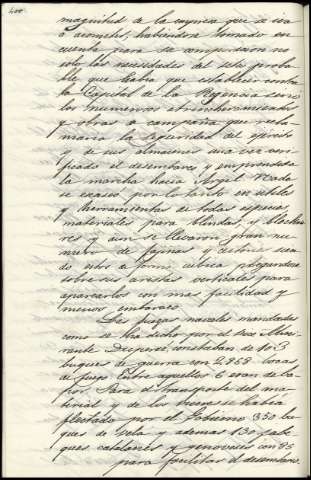 magnitud de la empresa que se iba
á acometer, habiendose tomado en
cuenta para su composicion no
solo las necesidades del sitio proba
ble que habia que establecer contra
la Capital de la Regencia sino
los numerosos atrincheramientos
y obras de campaña que recla
maria la seguridad del ejército
y de sus almacenes una vez veri
ficado el desembarco y emprendida
la marcha hacia Argel. Nada
se escaseó por lo tanto en útiles
y herramientas de todas especies,
materiales para blindas, y Blockau
res y aun se llevaron gran nu
mero de fajinas y
do estos de forma cubica plegandose
sobre sus aristas verticales para
aparcarlos con mas facilidad y
menos embarazo.
Las fuerzas navales mandadas
como se ha dicho por el vice Almi
rante Duperré, constaban de 103
buques de guerra con 2.968 bocas
de fuego. Entre aquellos 6 eran de Va
por. Para el transporte del ma
terial y de los viveres se habia
fletado por el Gobierno 350 bu
ques de vela y ademas 130 jabe
ques catalanes y genoveses con 85
para facilitar el desembarco.